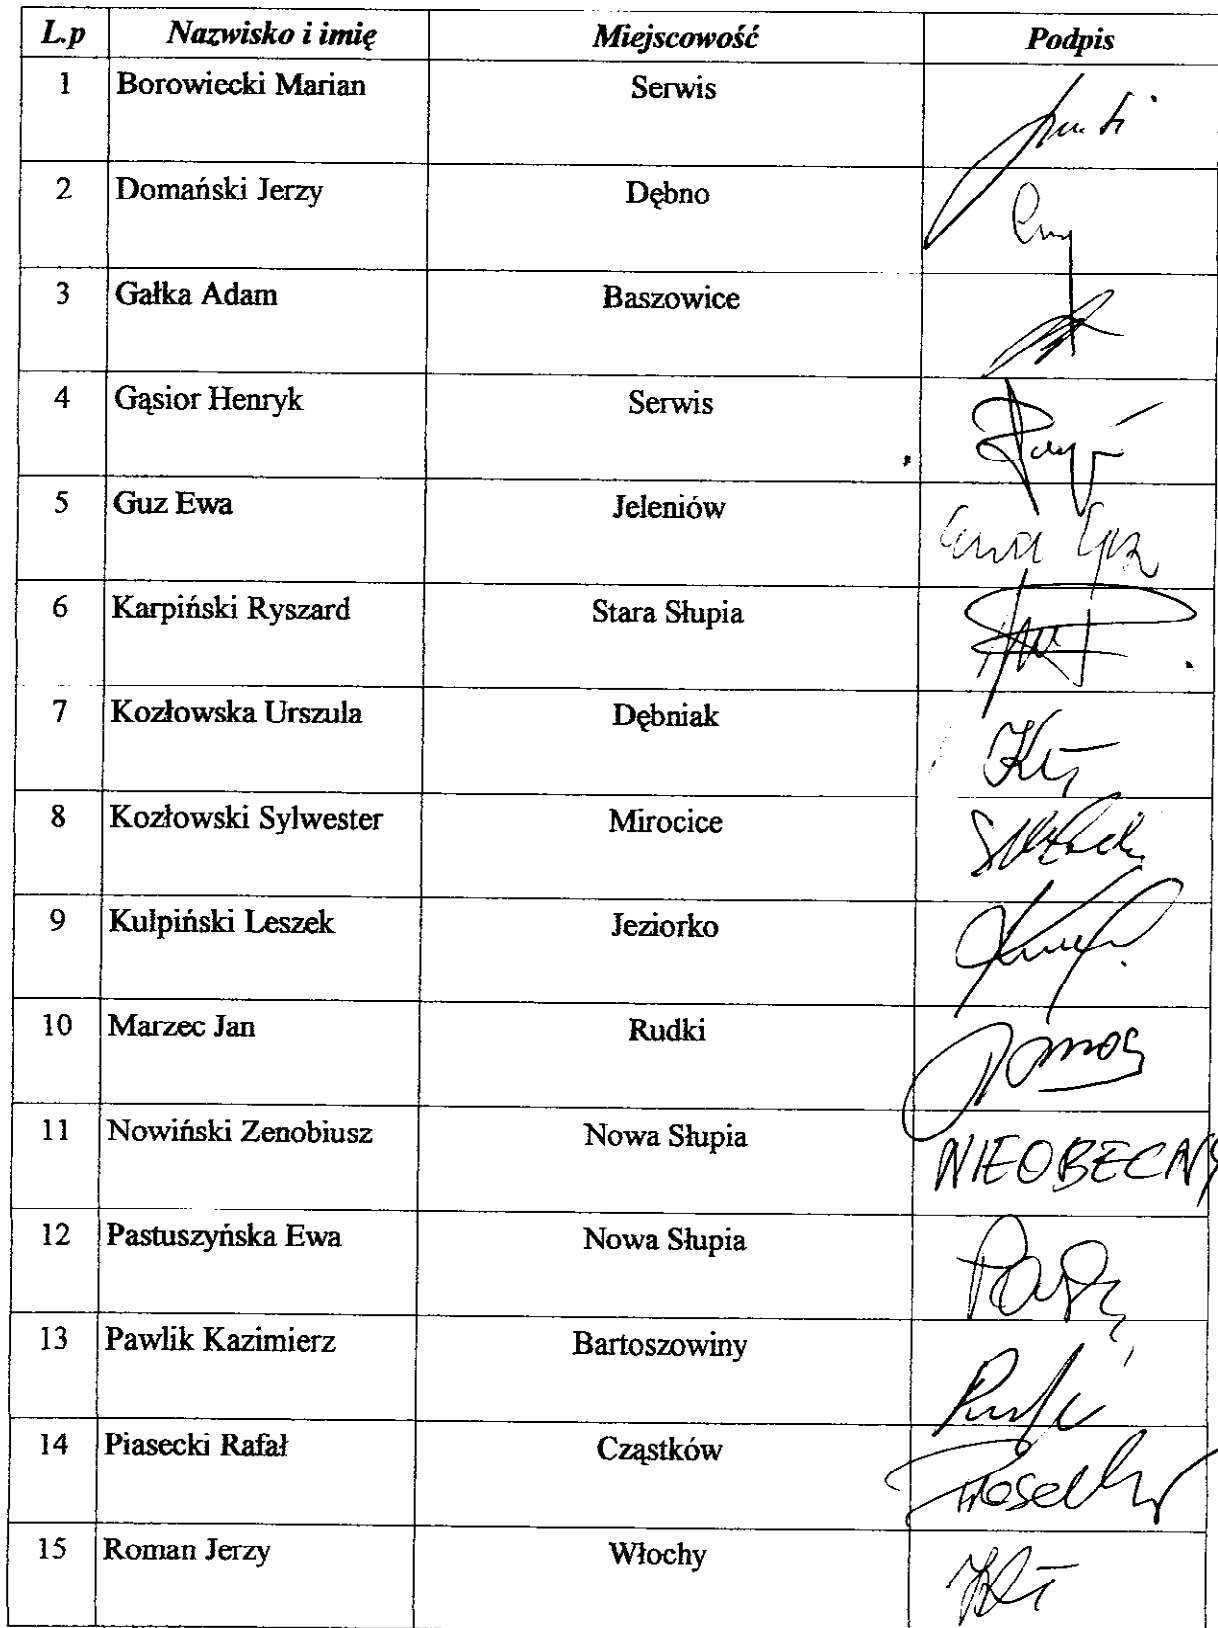 L.p Nazwisko i imię Miejscowość Podpis
1 Borowiecki Marian Serwis
2 Domański Jerzy Dębno
3 Gałka Adam Baszowice
4 Gąsior Henryk Serwis
5 Guz Ewa Jeleniów Ewa Guz
6 Karpiński Ryszard Stara Słupia
7 Kozłowska Urszula Dębniak
8 Kozłowski Sylwester Mirocice
9 Kulpiński Leszek Jeziorko
10 Marzec Jan Rudki
11 Nowiński Zenobiusz Nowa Słupia NIEOBECNY
12 Pastuszyńska Ewa Nowa Słupia
13 Pawlik Kazimierz Bartoszowiny
14 Piasecki Rafał Cząstków
15 Roman Jerzy Włochy